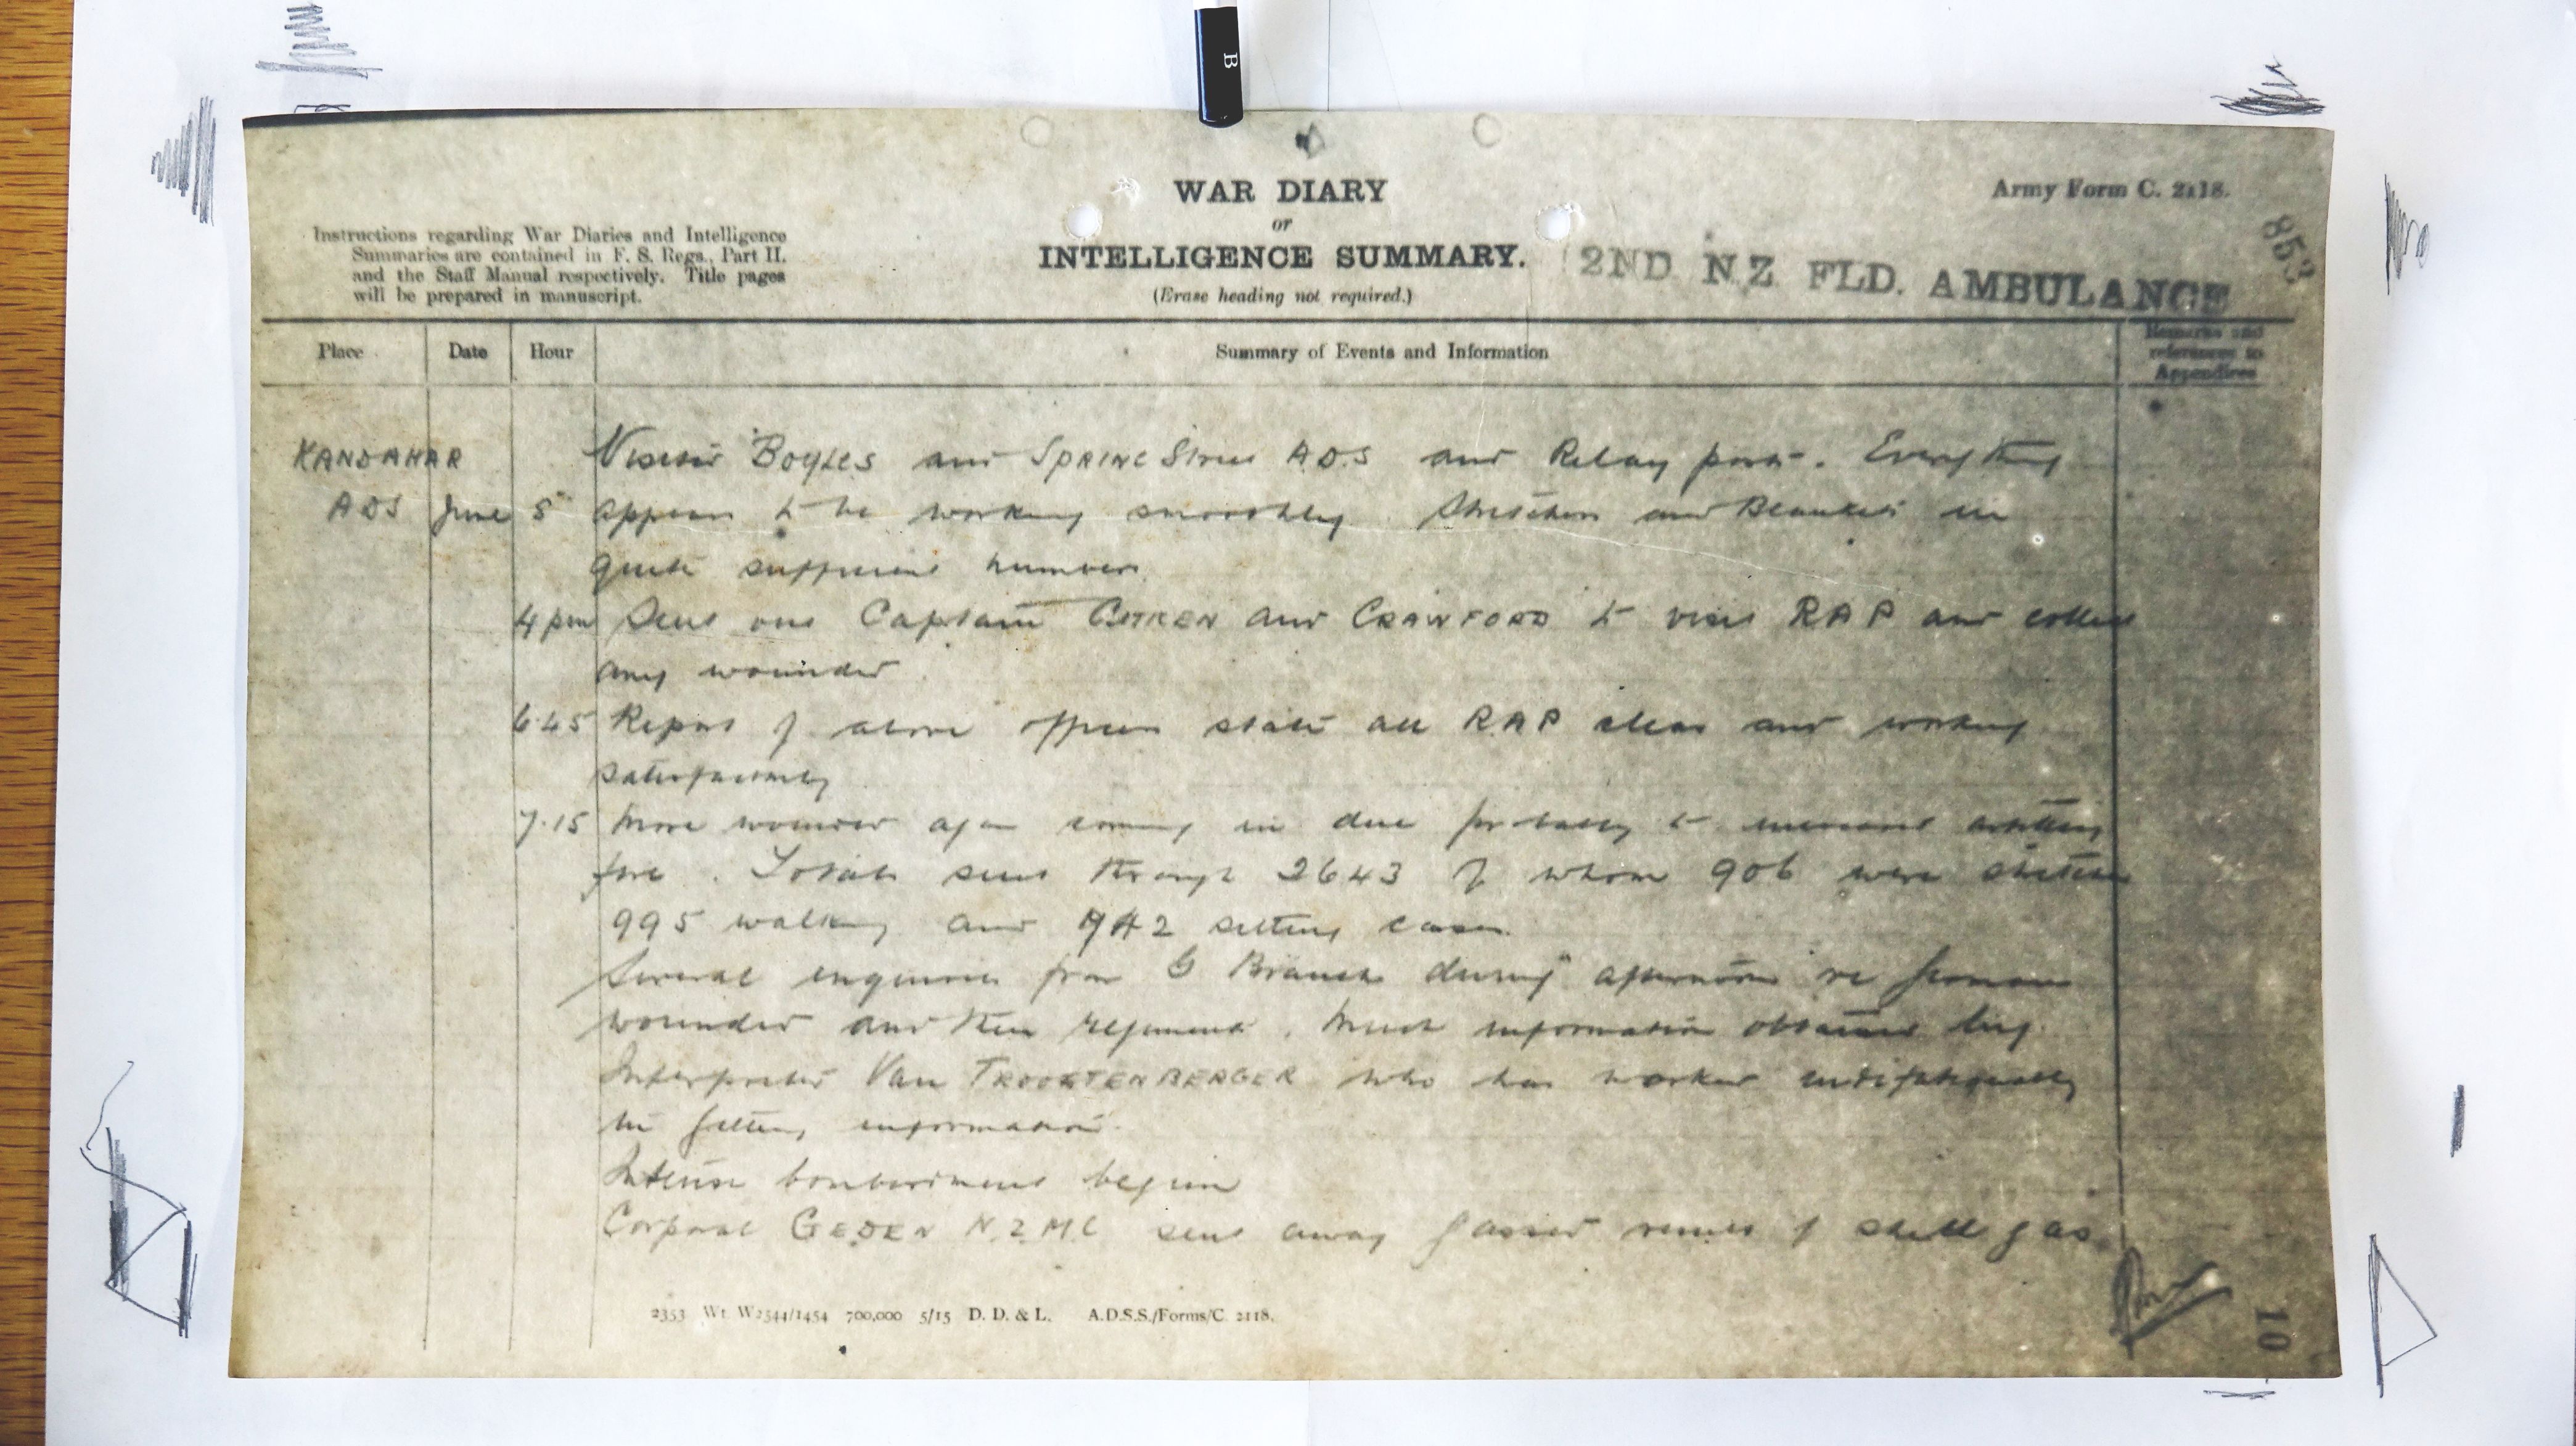 B
WAR DIARY
or
INTELLIGENCE SUMMARY.
(Erase heading not required.)
Army Form C. 2118.
853
Instructions regarding War Diaries and Intelligence
Summaries are contained in F. S. Regs., Part II.
and the Staff Manual respectively. Title pages
will be prepared in manuscript.
2ND NZ FLD. AMBULANCE
Place Date Hour Summary of Events and Information Remarks and
references to
Appendices
KANDAHAR Visited BOYLES and SPRING Street A.D.S and Relay posts. Everything
ADS June 8 appears to be working smoothly Stretchers and Blankets in
quite sufficient numbers
4 pm Sent out Captain and CRAWFORD to visit RAP and collect
any wounded
6.45 Report of above officers state all RAP clear and working
satisfactorily
7.15 More wounded again coming in due probably to increased artillery
fire. Totals sent through 2643 of whom 906 were stretcher
995 walking and 742 sitting cases
Several enquiries from G Branch during afternoon re German
wounded and their regiments. Much information obtained by
Interpreter Van who has worked indefatigably
in getting information.
Intense bombardment begun
Corporal GEDEN N.Z.M.C sent away gassed result of shell gas.
2353 Wt. W2544/1454 700,000 5/15 D. D. & L. A.D.S.S./Forms/C. 2118.
10